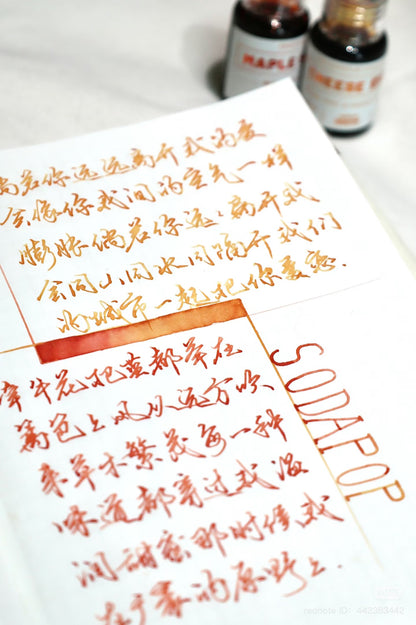 MAPLE
CHEESE
倘若你远远离开我的爱
会像你我间的空气一样
膨胀 倘若你远远离开我
会同山同水同隔开我们
的城市一起把你爱恋.
牵牛花把蓝都举在
篱笆上 风从远方吹
来 草木繁茂 每一种
味道都穿过我 温
润甜蜜 那时候我
在广袤的原野上.
SODAPOP
rednote ID: 442383442